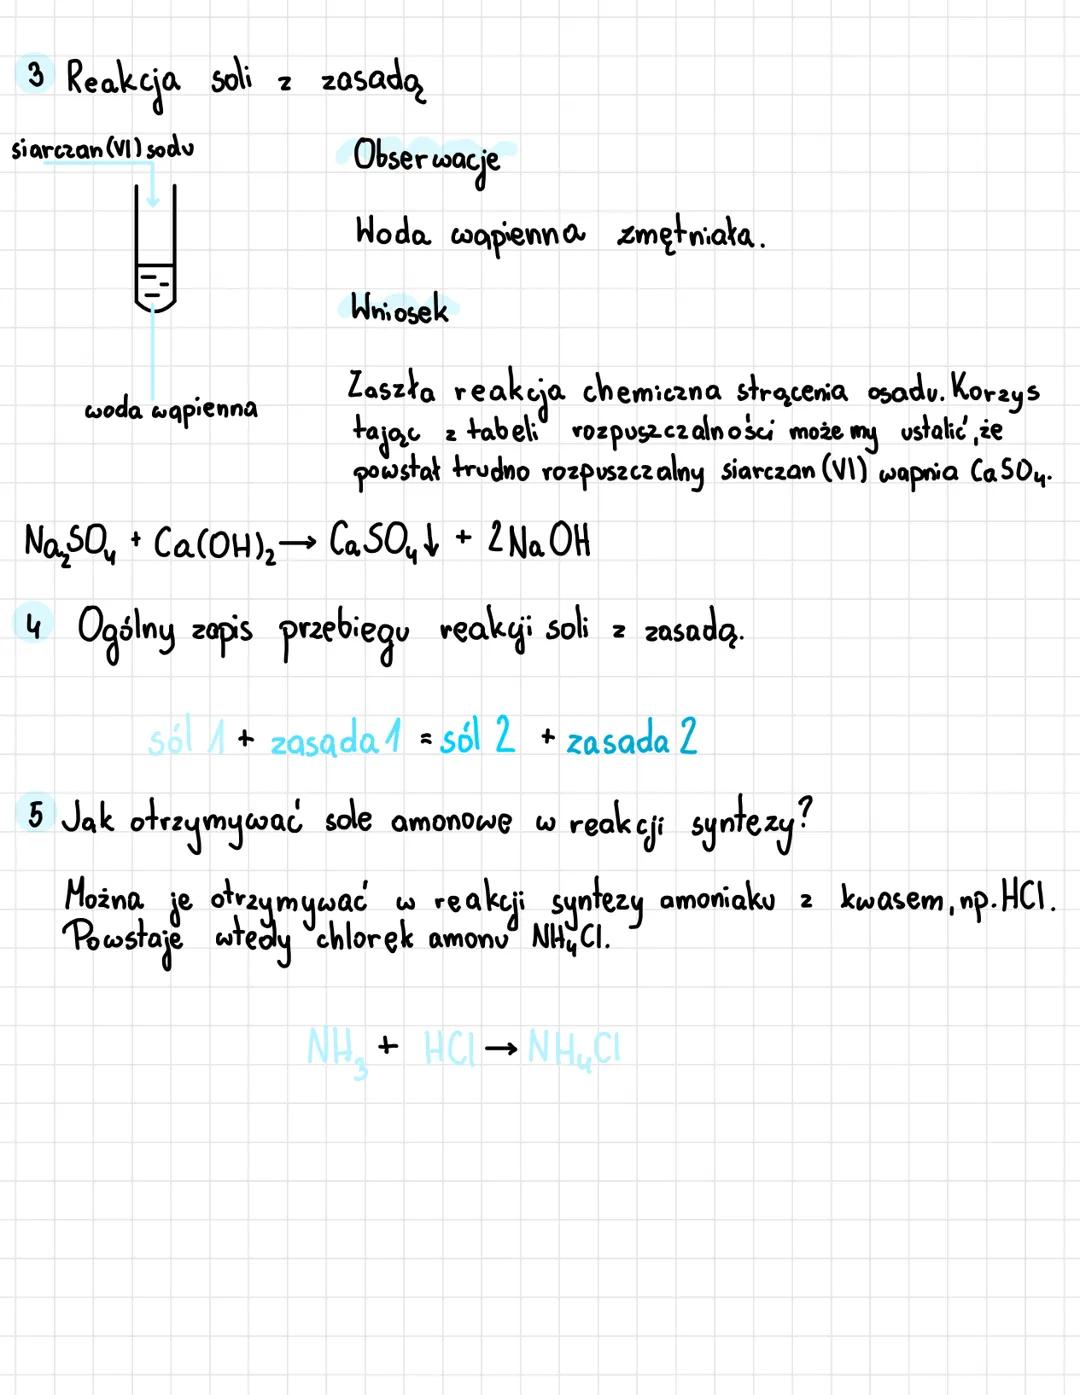 3 Reakcja soli z zasadą
siarczan (VI) sodu
Obserwacje
Woda wapienna zmętniała.
Wniosek
woda wapienna
Zaszła reakcja chemiczna strącenia osadu. Korzys
tając z tabeli rozpuszczalności możemy ustalić, że
powstał trudno rozpuszczalny siarczan (VI) wapnia CaSO₄.
Na₂SO₄ + Ca(OH)₂ → CaSO₄↓ + 2NaOH
4 Ogólny zapis przebiegu reakcji soli z zasadą.
sól 1 + zasada 1 = sól 2 + zasada 2
5 Jak otrzymywać sole amonowe w reakcji syntezy?
Można je otrzymywać w reakcji syntezy amoniaku z kwasem, np. HCl.
Powstaje wtedy chlorek amonu NH₄Cl.
NH₃ + HCl → NH₄Cl